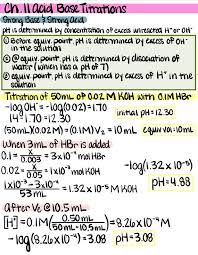 Ch. 11 Acid Base Titrations
Strong Base & Strong Acid
pH is determined by concentration of excess unreacted H⁺ or OH⁻
① Before equiv. point, pH is determined by excess of OH⁻
in the solution
② @ equiv. point, pH is determined by dissociation of
water (which has a pH of 7)
③ After equiv. point, pH is determined by excess of H⁺ in the
solution
Titration of 50mL of 0.02 M KOH with 0.1M HBr
-log[OH⁻] = -log(0.02) = 1.70
14 - 1.70 = 12.30
initial pH = 12.30
(50mL)(0.02 M) = (0.1 M) Ve = 10 mL
equiv vol = 10mL
When 3mL of HBr is added
0.1 = x/0.003 = 3×10⁻⁴ mol HBr
0.02 = x/0.05 = 1×10⁻³ mol KOH
1×10⁻³ - 3×10⁻⁴ / 53 mL = 1.32×10⁻⁵ M KOH
-log(1.32 × 10⁻⁵)
pH = 4.88
After Ve @ 10.5 mL
[H⁺] = 0.1M (0.50mL / 50mL + 10.5mL) = 8.26×10⁻⁴ M
-log(8.26×10⁻⁴) = 3.08
pH = 3.08